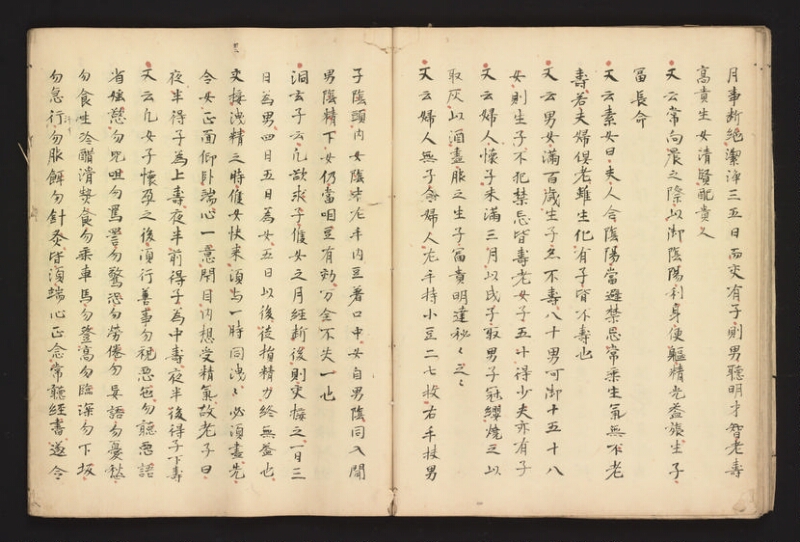 月事断絶潔浄三五日而交有子則男聡明才智老寿
高貴生女清賢配貴人
又云常向晨之際以御陰陽利身便軀精光益張生子
冨長命
又云素女曰夫人合陰陽當避禁忌常乗生氣無不老
壽若夫婦倶老雖生化有子皆不壽也
又云男女満百歳生子亦不壽八十男可御十五十八
女則生子不犯禁忌皆壽老女子五十得少夫亦有子
又云婦人懐子未満三月以戊子取男子冠纓燒之以
取灰以酒盡服之生子冨貴明達秘〻之〻
又云婦人無子令婦人左手持小豆二七枚右手扶男
子陰頭内女陰中左手内豆著口中女自男陰同入聞
男陰精下女仍當咽豆有効万全不失一也
洞玄子云凢欲求子候女之月經断後則交接之一日三
日為男四日五日為女五日以後徒損精力終無益也
交接洩精之時候女快来須与一時同洩〻必須盡先
令女正面仰臥端心一意閇目内想受精氣故老子曰
夜半得子為上壽夜半前得子為中壽夜半後得子下壽
又云凢女子懐孕之後須行善事勿視惡色勿聴惡語
省婬慾勿咒咀勿罵詈勿驚恐勿勞倦勿妄語勿憂愁
勿食生冷醋滑熱食勿乗車馬勿登高勿臨深勿下坂
勿急行勿服餌勿針灸皆須端心正念常聴經書遂令